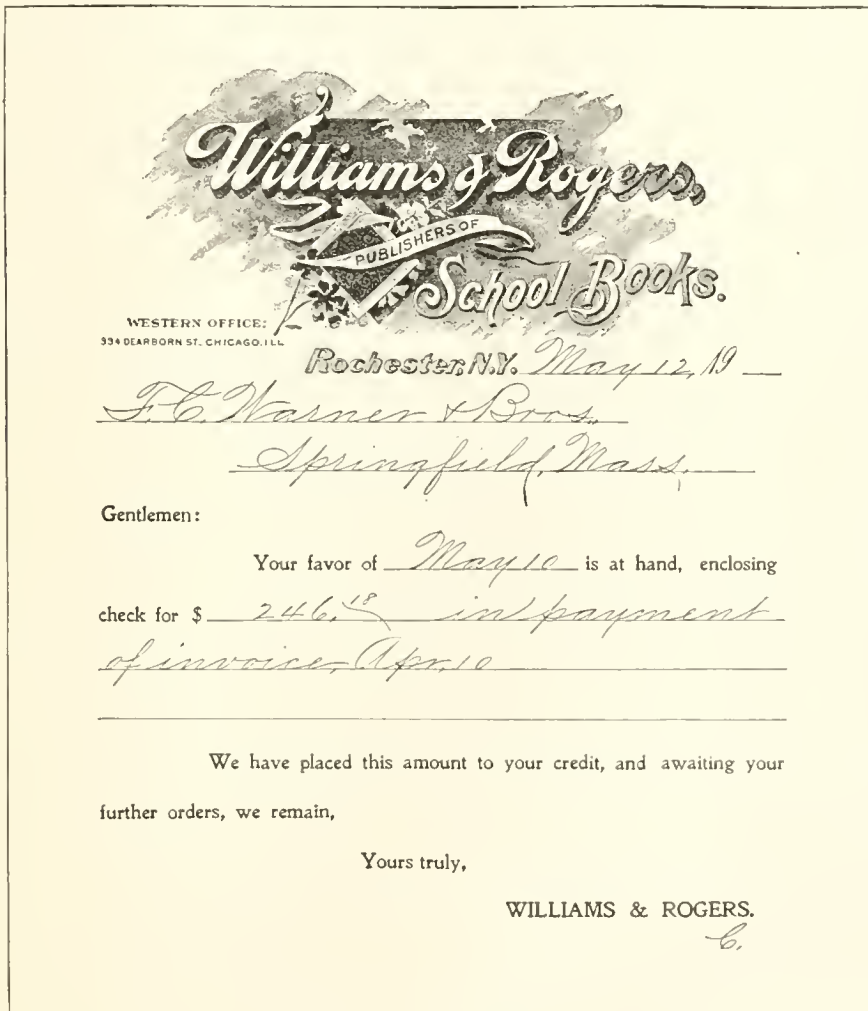 Williams & Rogers,
PUBLISHERS OF
School Books.
WESTERN OFFICE:
334 DEARBORN ST. CHICAGO. ILL
Rochester, N.Y. May 12, 19 —
F. C. Warner & Bros.,
Springfield, Mass.
Gentlemen:
Your favor of May 10 is at hand, enclosing
check for $ 246.18 in payment
of invoice, Apr. 10
We have placed this amount to your credit, and awaiting your
further orders, we remain,
Yours truly,
WILLIAMS & ROGERS.
C.